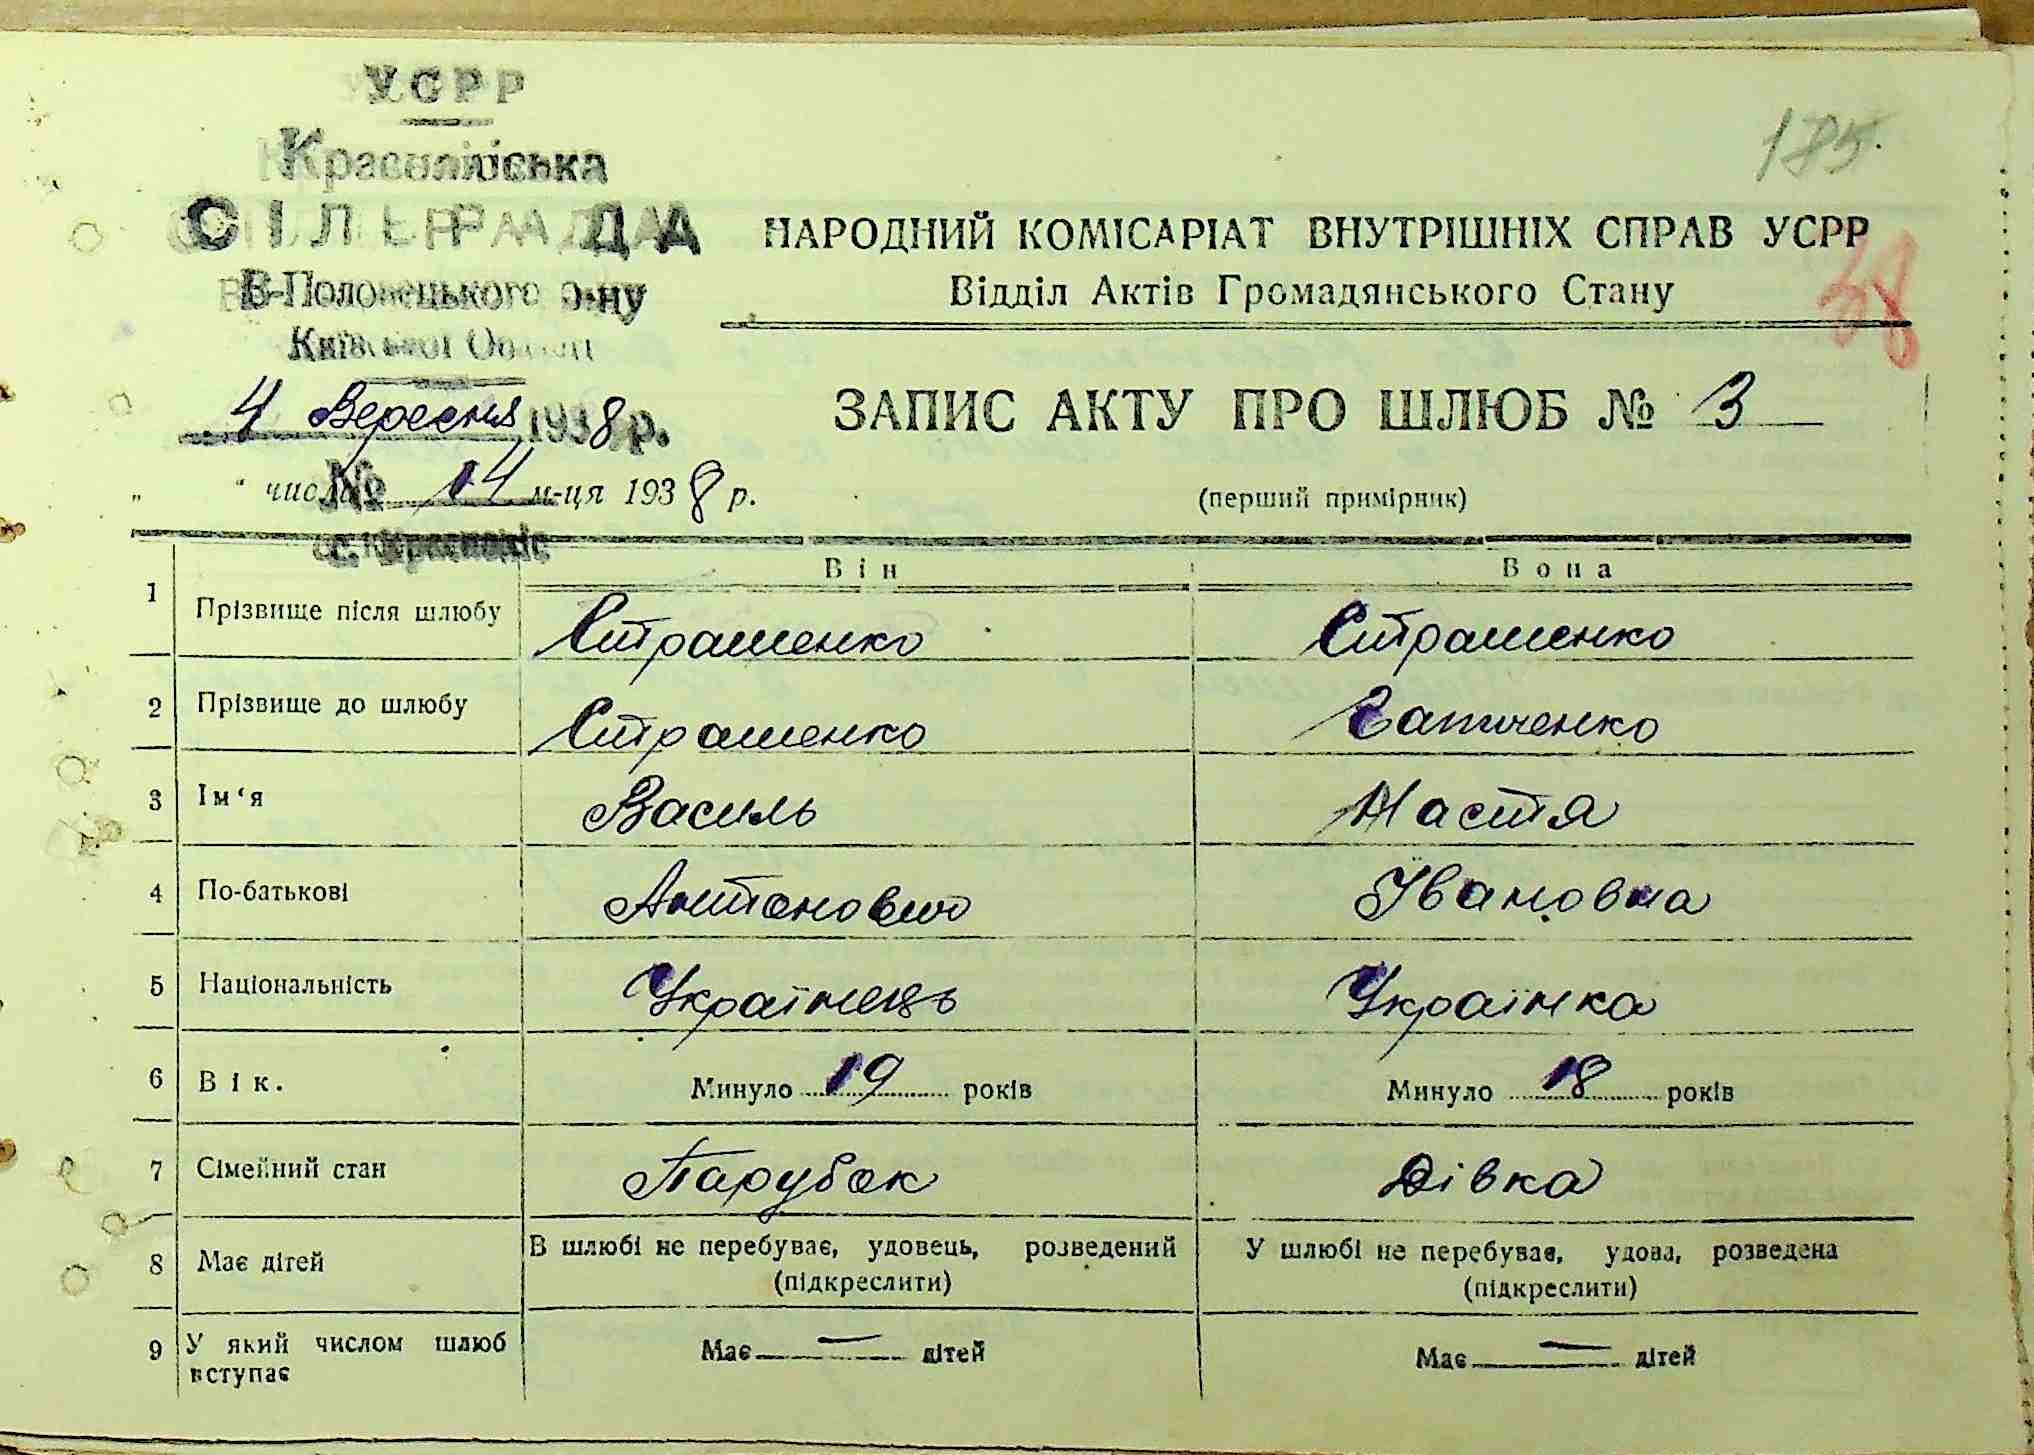 УСРР
Краснолiська
СIЛЬРАДА
В-Половецького р-ну
Київської Області
4 Вересня 1938 р.
№ 14
" " числа м-ця 1938 р.
с. Красноліс
185.
38
НАРОДНИЙ КОМІСАРІАТ ВНУТРІШНІХ СПРАВ УСРР
Відділ Актів Громадянського Стану
ЗАПИС АКТУ ПРО ШЛЮБ № 3
(перший примірник)
Він Вона
1 Прізвище після шлюбу Страшенко Страшенко
2 Прізвище до шлюбу Страшенко
3 Ім'я Василь Настя
4 По-батькові Антонович Івановна
5 Національність Українець Українка
6 Вік. Минуло 19 років Минуло 18 років
7 Сімейний стан Парубок Дівка
8 Має дітей В шлюбі не перебуває, удовець, розведений У шлюбі не перебуває, удова, розведена
(підкреслити) (підкреслити)
9 У який числом шлюб Має — дітей Має — дітей
вступає